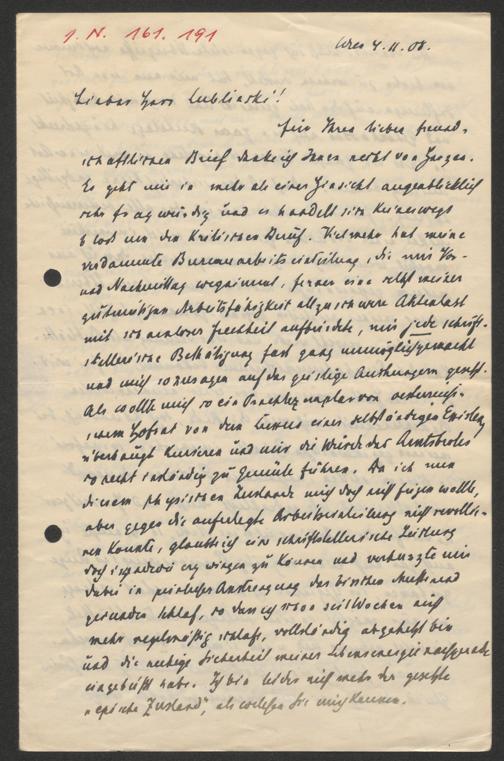 J. N. 161.191
Wien 4. II. 08.
Lieber Herr Lublinski!
Für Ihren lieben freund-
schaftlichen Brief danke ich Ihnen recht von Herzen.
Es geht mir in mehr als einer Hinsicht augenblicklich
sehr fragwürdig und es handelt sich keineswegs
bloß um den kritischen Beruf. Vielmehr hat meine
verdammte Bureauarbeitseinteilung, die mir Vor-
und Nachmittag wegnimmt, ferner eine selbst meiner
gutmütigen Arbeitsfähigkeit allzu schwere Aktenlast
mit schamloser Frechheit aufbürdete, mir jede schrift-
stellerische Betätigung fast ganz unmöglich gemacht
und mich sozusagen auf das geistige Aushungern gesetzt.
Als wollte mich so ein Prachtexemplar von oesterreichi-
schem Hofrat von dem Luxus einer selbständigen Existenz
überhaupt kurieren und mir die Würde des Amtsbrotes
so recht inständig zu Gemüte führen. Da ich nun
diesem physischen Zustande mich doch nicht fügen wollte,
aber gegen die auferlegte Arbeitseinteilung nicht revoltie-
ren konnte, glaubte ich eine schriftstellerische Leistung
doch irgendwie erzwingen zu können und verhunzte mir
dabei in peinlicher Anstrengung das bischen Muße und
gesunden Schlaf, so dass ich schon seit Wochen nicht
mehr regelmäßig schlafe, vollständig abgehetzt bin
und die ruhige Sicherheit meiner Lebensenergie nachgerade
eingebüßt habe. Ich bin leider nicht mehr der gesetzte
"epische Zustand", als welchen Sie mich kennen.